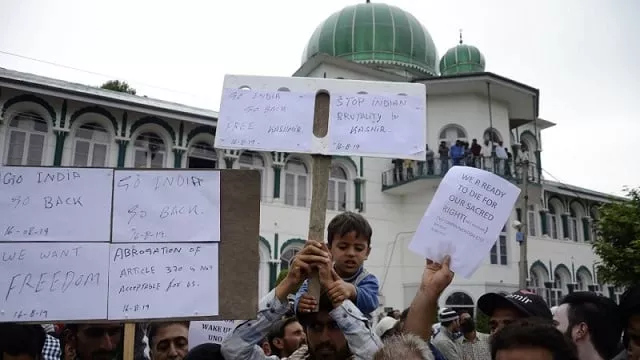 GO INDIA
GO BACK
FREE KASHMIR
16-8-19
STOP INDIAN
BRUTALITY IN
KASHIR
16-8-19
GO INDIA
GO BACK
16-08-19
GO INDIA
GO BACK.
16/8/19
WE WANT
FREEDOM
16-8/19
ABROGATION OF
ARTICLE 370 IS NOT
ACCEPTABLE FOR US.
16-8-19
WE R READY
TO DIE FOR
OUR SACRED
RIGHT
WAKE UP